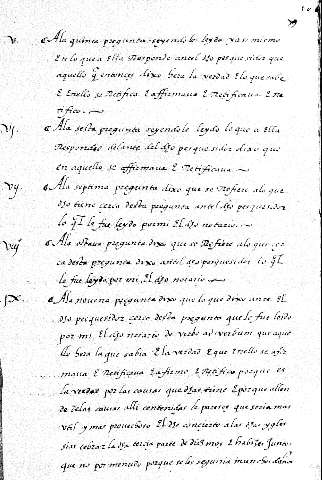 v. A la quinta pregunta seyendole leydo xxx mismo
En lo que a Ella Responde antel dho pesquisidor que
aquello q entonces dixo hera la verdad E lo que sabe
E En ello se Retifico E affirmava E Retificava E Re
tifico.
vj. A la sesta pregunta seyendole leydo lo que a Ella
Respondio delante del dho pesquesidor dixo que
en aquello se affirmava E Retificava
vij. A la septima pregunta dixo que se Refiere a lo que
dho tiene cerca desta pregunta antel dho pesquesidor
lo ql le fue leydo por mi El dho notario
viij. A la octava pregunta dixo que se Refiere a lo que
cerca desta pregunta dixo antel dho pesquesidor lo ql
le fue leydo por mi El dho notario
ix. A la novena pregunta dixo que lo que dixo ante El
dho pesquesidor cerca desta pregunta que le fue leido
por mi El dho notario de verbo ad verbum que aque
llo hera la que sabia E la verdad E que En ello se afir
mava E Retificava E afirmo E Retifico porque es
la verdad por las causas que dhas tiene E porque allen
de de las causas alli contenidas le parece que seria mas
util y mas provechoso El dho concierto a las dhas ygle
sias cobrar la dha tercia parte de diezmos E habizes junta
que no por menudo porque se les seguiria mucho daño